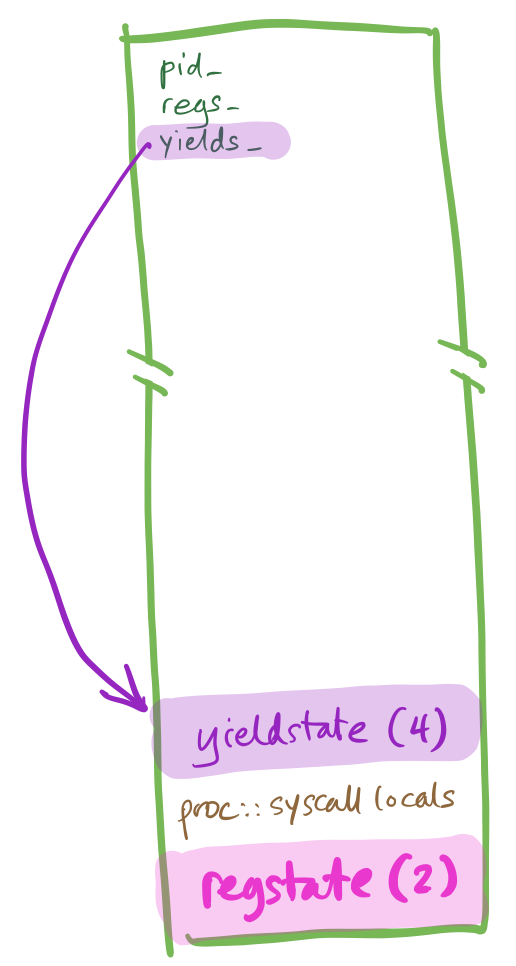 pid_
regs_
yields_
yieldstate (4)
proc::syscall locals
regstate (2)